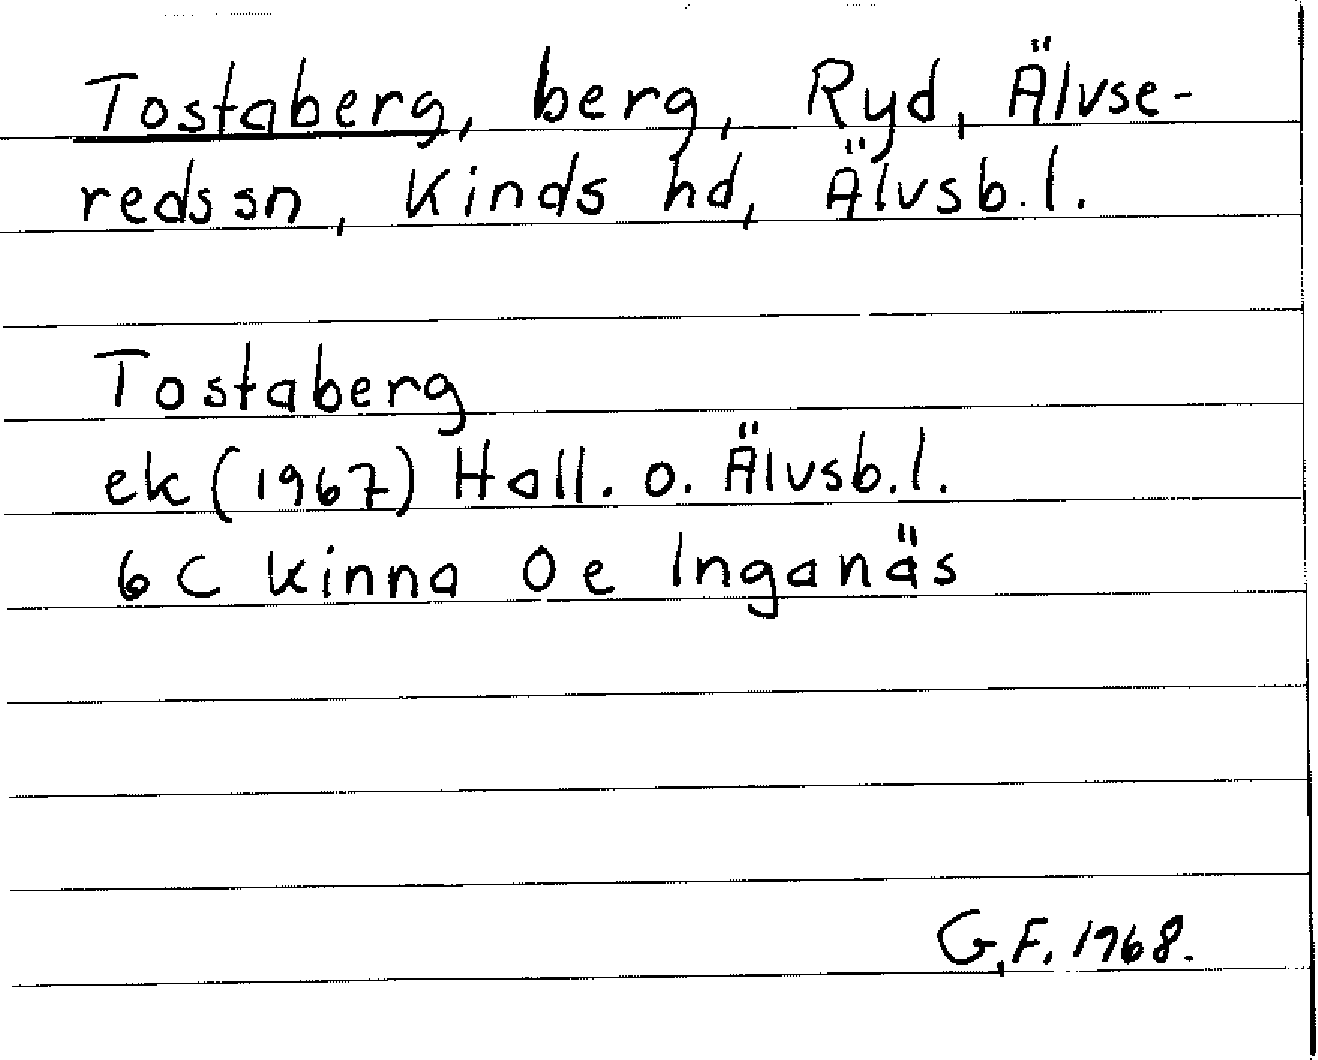 Tostaberg, berg, Ryd, Älvse-
reds sn, Kinds hd, Älvsb. l.
Tostaberg
ek (1967) Hall. o. Älvsb. l.
6 C Kinna 0 e Inganäs
G.F. 1968.